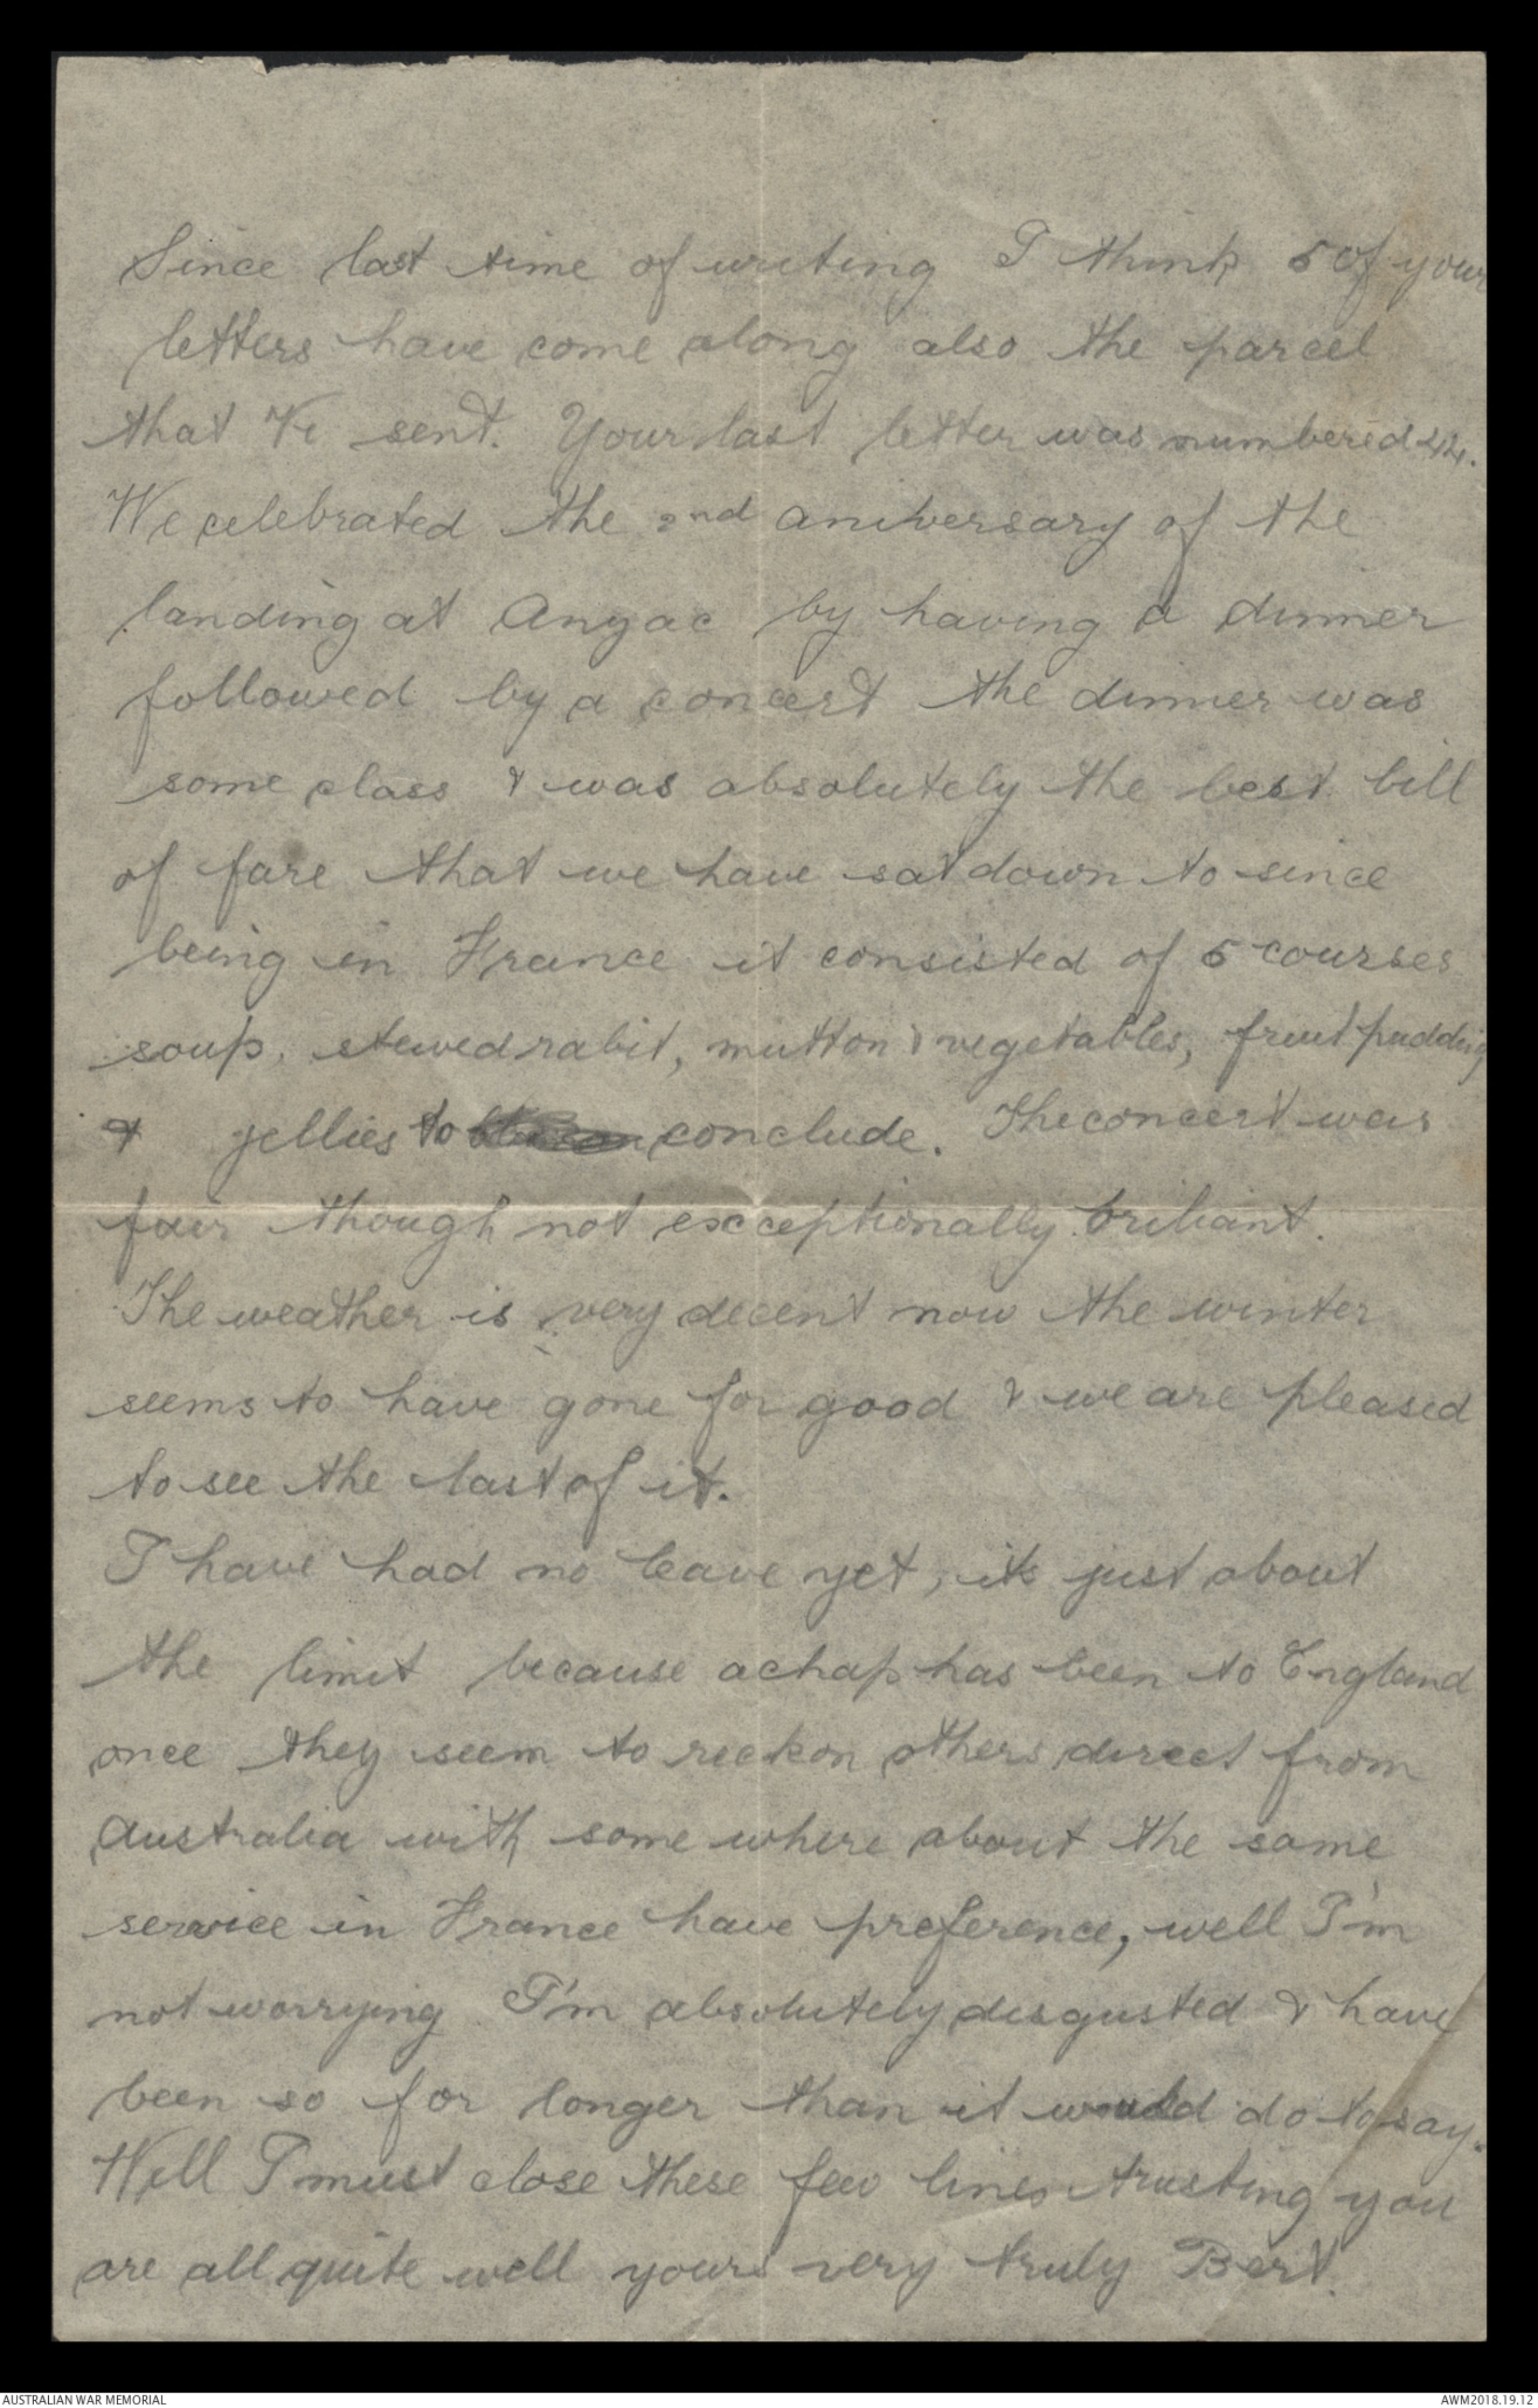 Since last time of writing I think 5 of your
letters have come along also the parcel
that Ve sent. Your last letter was numbered 44.
We celebrated the 2nd aniversary of the
landing at Anzac by having a dinner
followed by a concert the dinner was
some class & was absolutely the best bill
of fare that we have sat down to since
being in France it consisted of 5 courses
soup, stewed rabit, mutton & vegetables, fruit pudding
& jellies to conclude. The concert was
fair though not excceptionally briliant.
The weather is very decent now the winter
seems to have gone for good & we are pleased
to see the last of it.
I have had no leave yet, its just about
the limit because a chap has been to England
once they seem to reckon others direct from
Australia with some where about the same
service in France have preference, well I'm
not worrying I'm absolutely disgusted & have
been so for longer than it would do to say.
Well I must close these few lines trusting you
are all quite well yours very truly Bert.
AUSTRALIAN WAR MEMORIAL
AWM2018.19.12